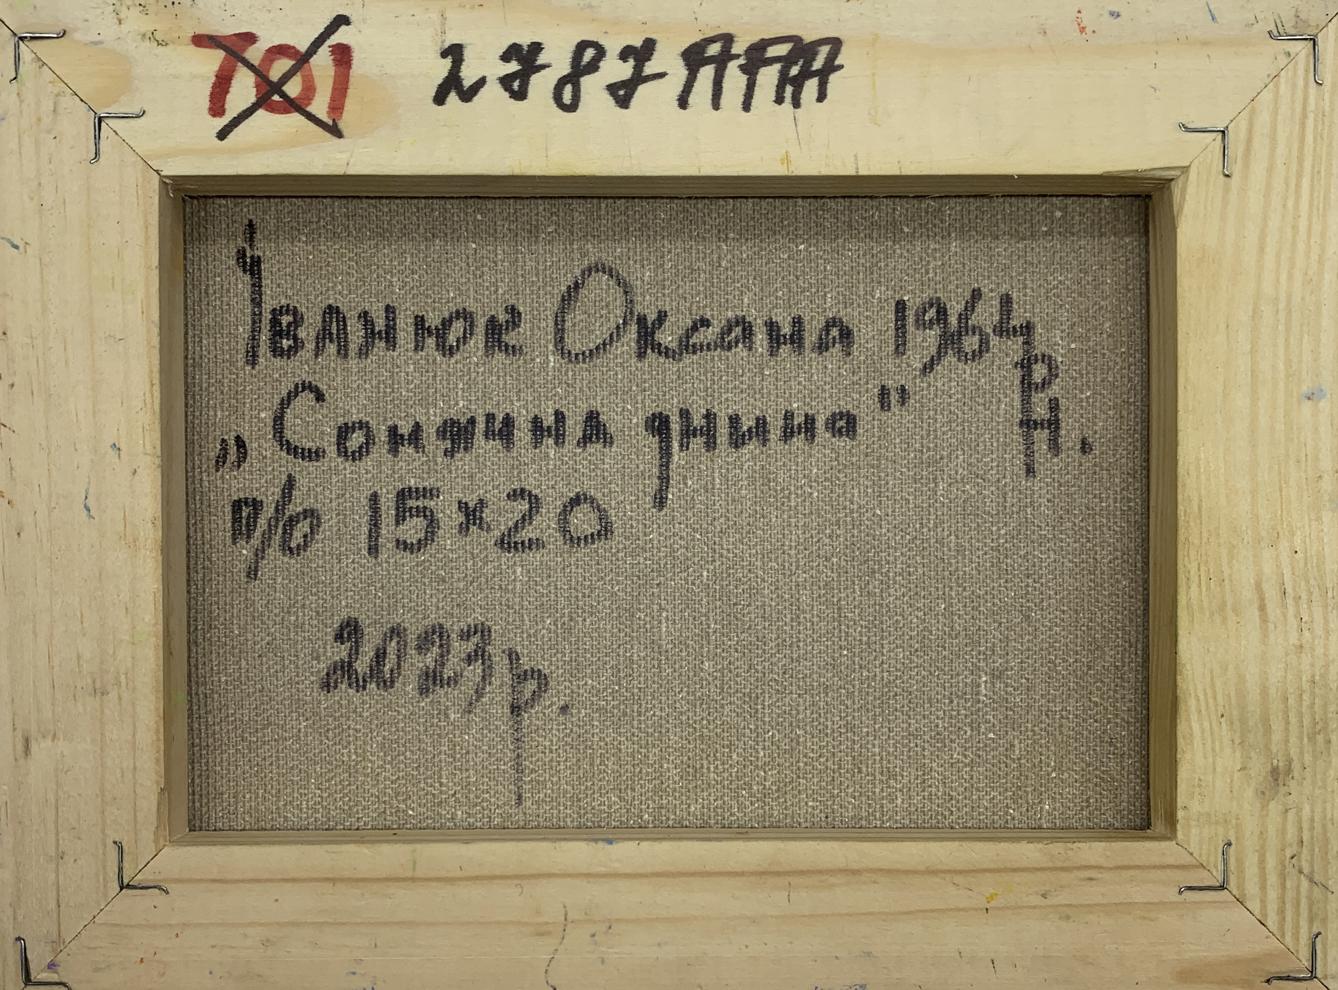 701 2787АААА
Іванюк Оксана 1964
р
н.
„Сонячна днина"
п/о 15×20
2023р.